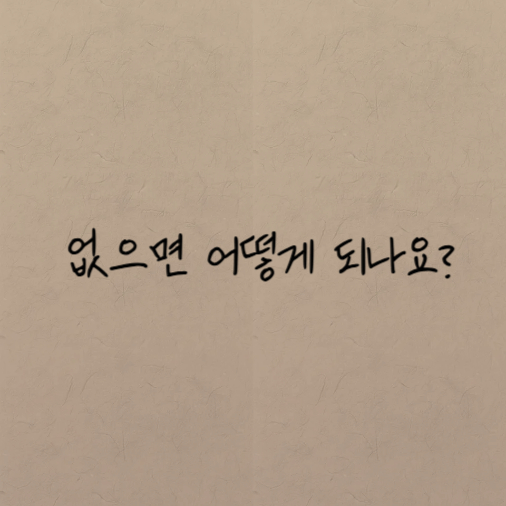 없으면 어떻게 되나요?